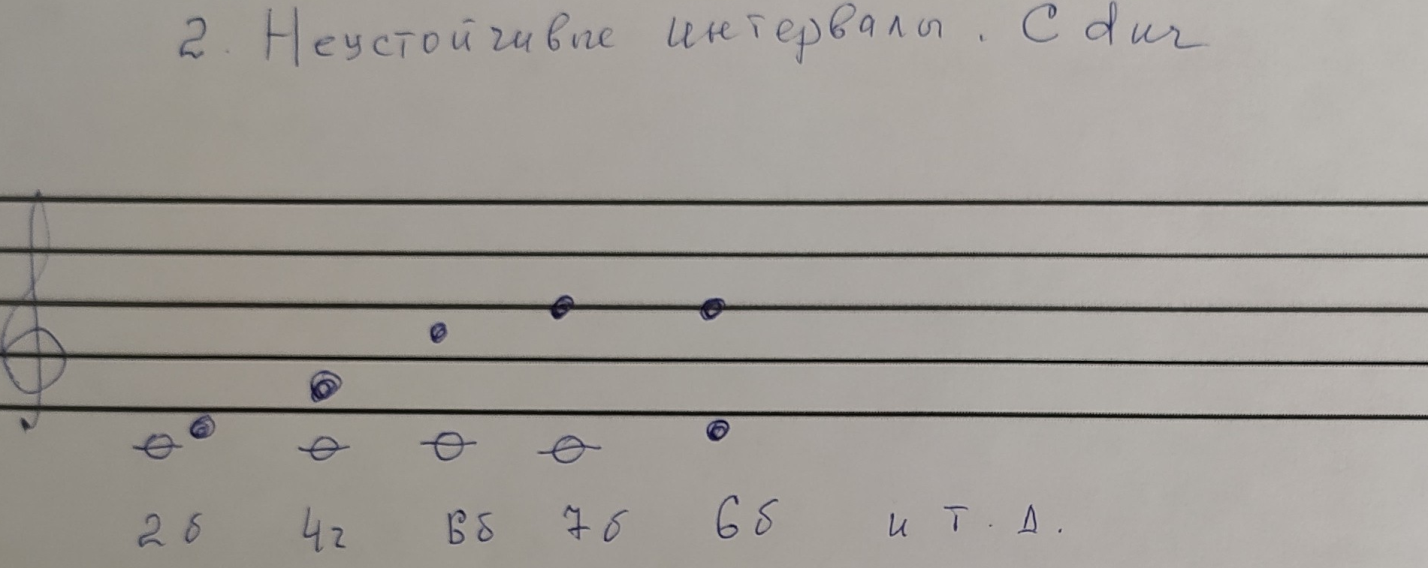 2. Неустойчивые интервалы. C dur
2б 4ч 6б 7б 6б и т.д.